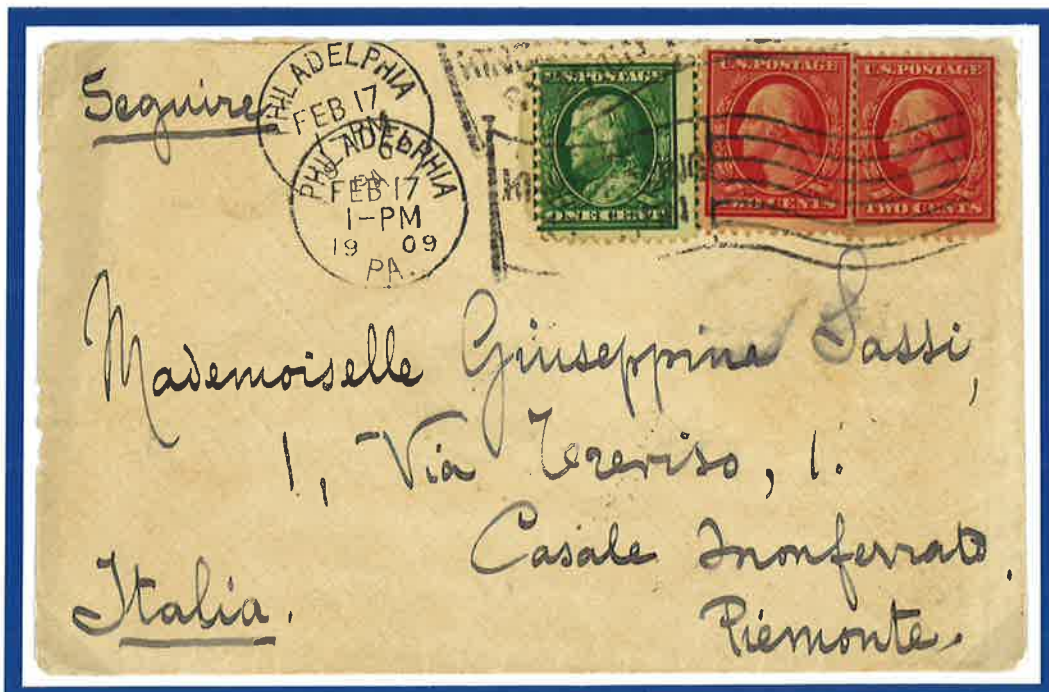 Seguire
PHILADELPHIA
FEB 17
PHILADELPHIA
PA
FEB 17
1-PM
19 09
PA.
U.S. POSTAGE
ONE CENT
U.S. POSTAGE
TWO CENTS
U.S. POSTAGE
TWO CENTS
Mademoiselle Giuseppina Sassi,
1, Via Treviso, 1.
Casale Monferrato.
Piemonte.
Italia.